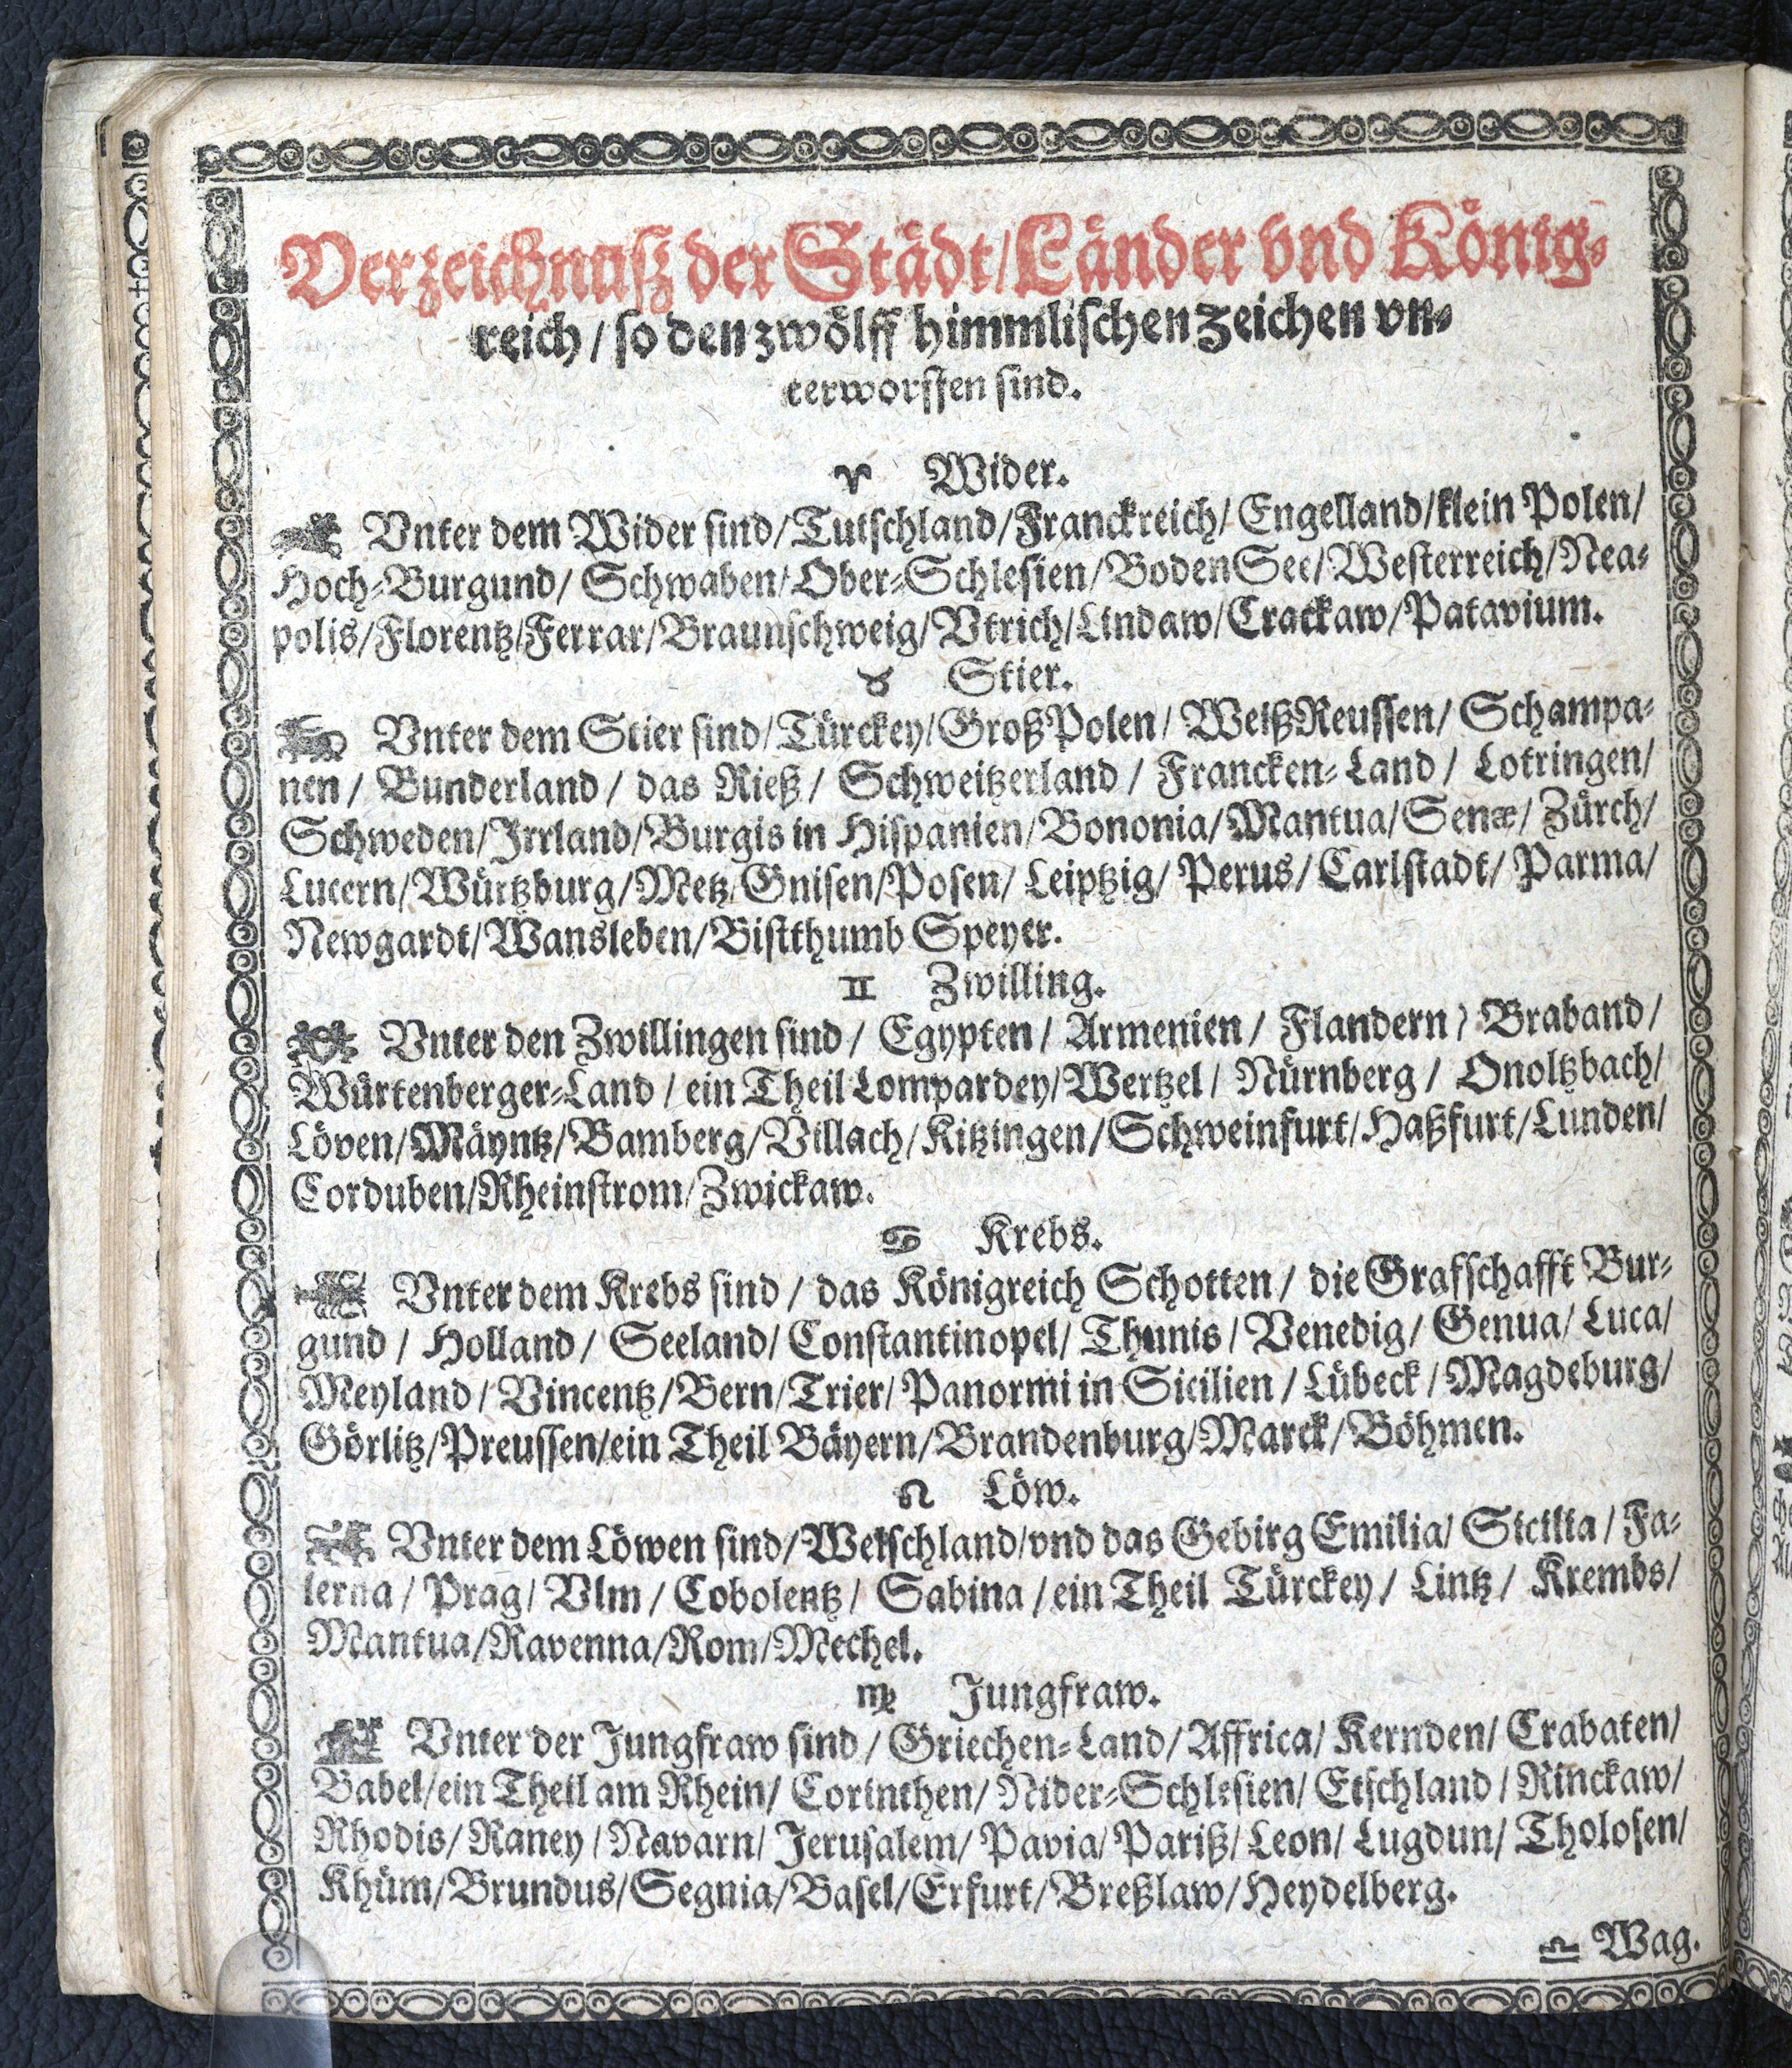 Verzeichnuß der Städt/Länder vnd König-
reich/so den zwölff himmlischen Zeichen vn-
terworffen sind.
♈ Wider.
Vnter dem Wider sind/Tutschland/Franckreich/Engelland/klein Polen/
Hoch-Burgund/Schwaben/Ober-Schlesien/BodenSee/Westerreich/Nea-
polis/Florentz/Ferrar/Braunschweig/Vtrich/Lindaw/Crackaw/Patavium.
♉ Stier.
Vnter dem Stier sind/Türckey/GroßPolen/WeißReussen/Schampa-
nen/Bunderland/das Rieß/Schweitzerland/Francken-Land/Lotringen/
Schweden/Irrland/Burgis in Hispanien/Bononia/Mantua/Senæ/Zürch/
Lucern/Würtzburg/Metz/Gnisen/Posen/Leiptzig/Perus/Carlstadt/Parma/
Newgardt/Wansleben/Bistthumb Speyer.
♊ Zwilling.
Vnter den Zwillingen sind/Egypten/Armenien/Flandern/Braband/
Würtenberger-Land/ein Theil Lompardey/Wertzel/Nürnberg/Onoltzbach/
Löven/Mäyntz/Bamberg/Villach/Kitzingen/Schweinfurt/Haßfurt/Lunden/
Corduben/Rheinstrom/Zwickaw.
♋ Krebs.
Vnter dem Krebs sind/das Königreich Schotten/die Grafschafft Bur-
gund/Holland/Seeland/Constantinopel/Thunis/Venedig/Genua/Luca/
Meyland/Vincentz/Bern/Trier/Panormi in Sicilien/Lübeck/Magdeburg/
Görlitz/Preussen/ein Theil Bäyern/Brandenburg/Marck/Böhmen.
♌ Löw.
Vnter dem Löwen sind/Welschland/vnd das Gebirg Emilia/Sicilia/Fa-
lerna/Prag/Vlm/Cobolentz/Sabina/ein Theil Türckey/Lintz/Krembs/
Mantua/Ravenna/Rom/Mechel.
♍ Jungfraw.
Vnter der Jungfraw sind/Griechen-Land/Affrica/Kernden/Crabaten/
Babel/ein Theil am Rhein/Corinthen/Nider-Schlesien/Etschland/Rinckaw/
Rhodis/Raney/Navarn/Jerusalem/Pavia/Pariß/Leon/Lugdun/Tholosen/
Khüm/Brundus/Segnia/Basel/Erfurt/Breßlaw/Heydelberg.
♎ Wag.